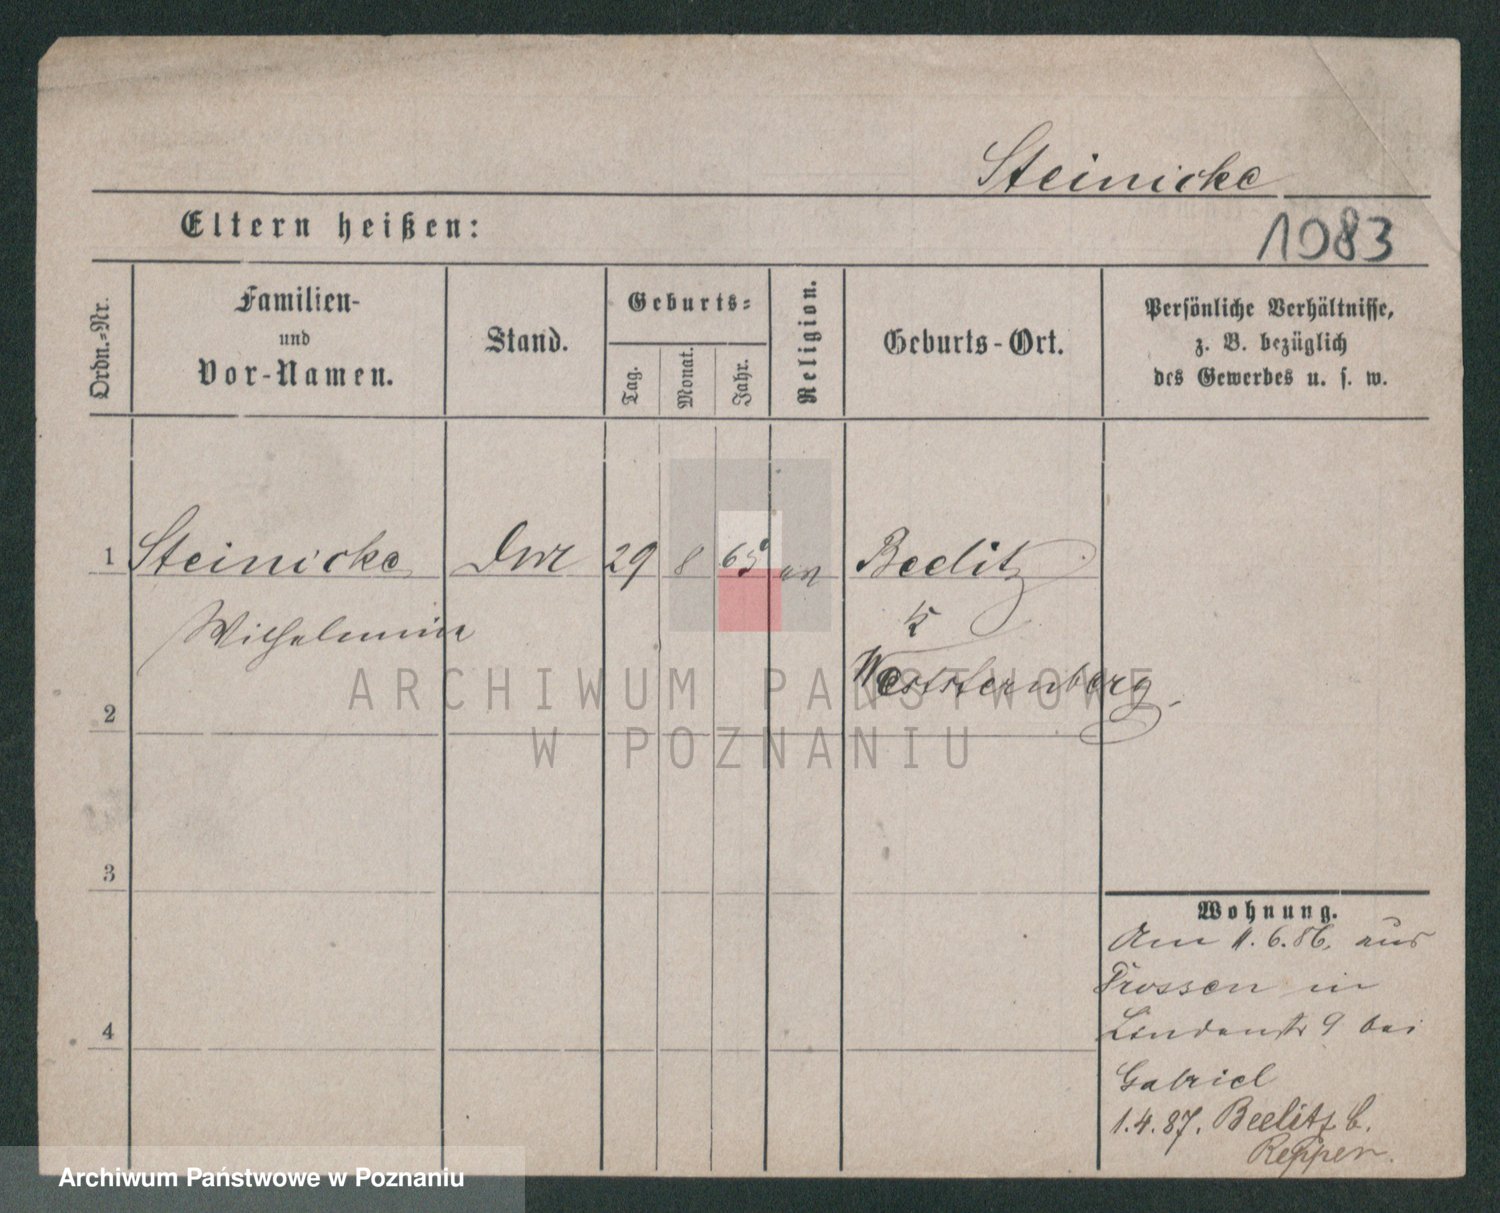 Steinicke
Eltern heißen:
1083
Ordn.=Nr.
Familien-
und
Vor-Namen.
Stand.
Geburts=
Tag.
Monat.
Jahr.
Religion.
Geburts-Ort.
Persönliche Verhältnisse,
z. B. bezüglich
des Gewerbes u. s. w.
1 Steinicke 29 8 65 Beelitz
Wilhelmine
Weststernberg
2
3
4
ARCHIWUM PAŃSTWOWE
W POZNANIU
Wohnung.
Am 11.6.86. aus
Drossen in
Lindenstr 9 bei
Gabriel
1.4.87. Beelitz b.
Reppen.
Archiwum Państwowe w Poznaniu